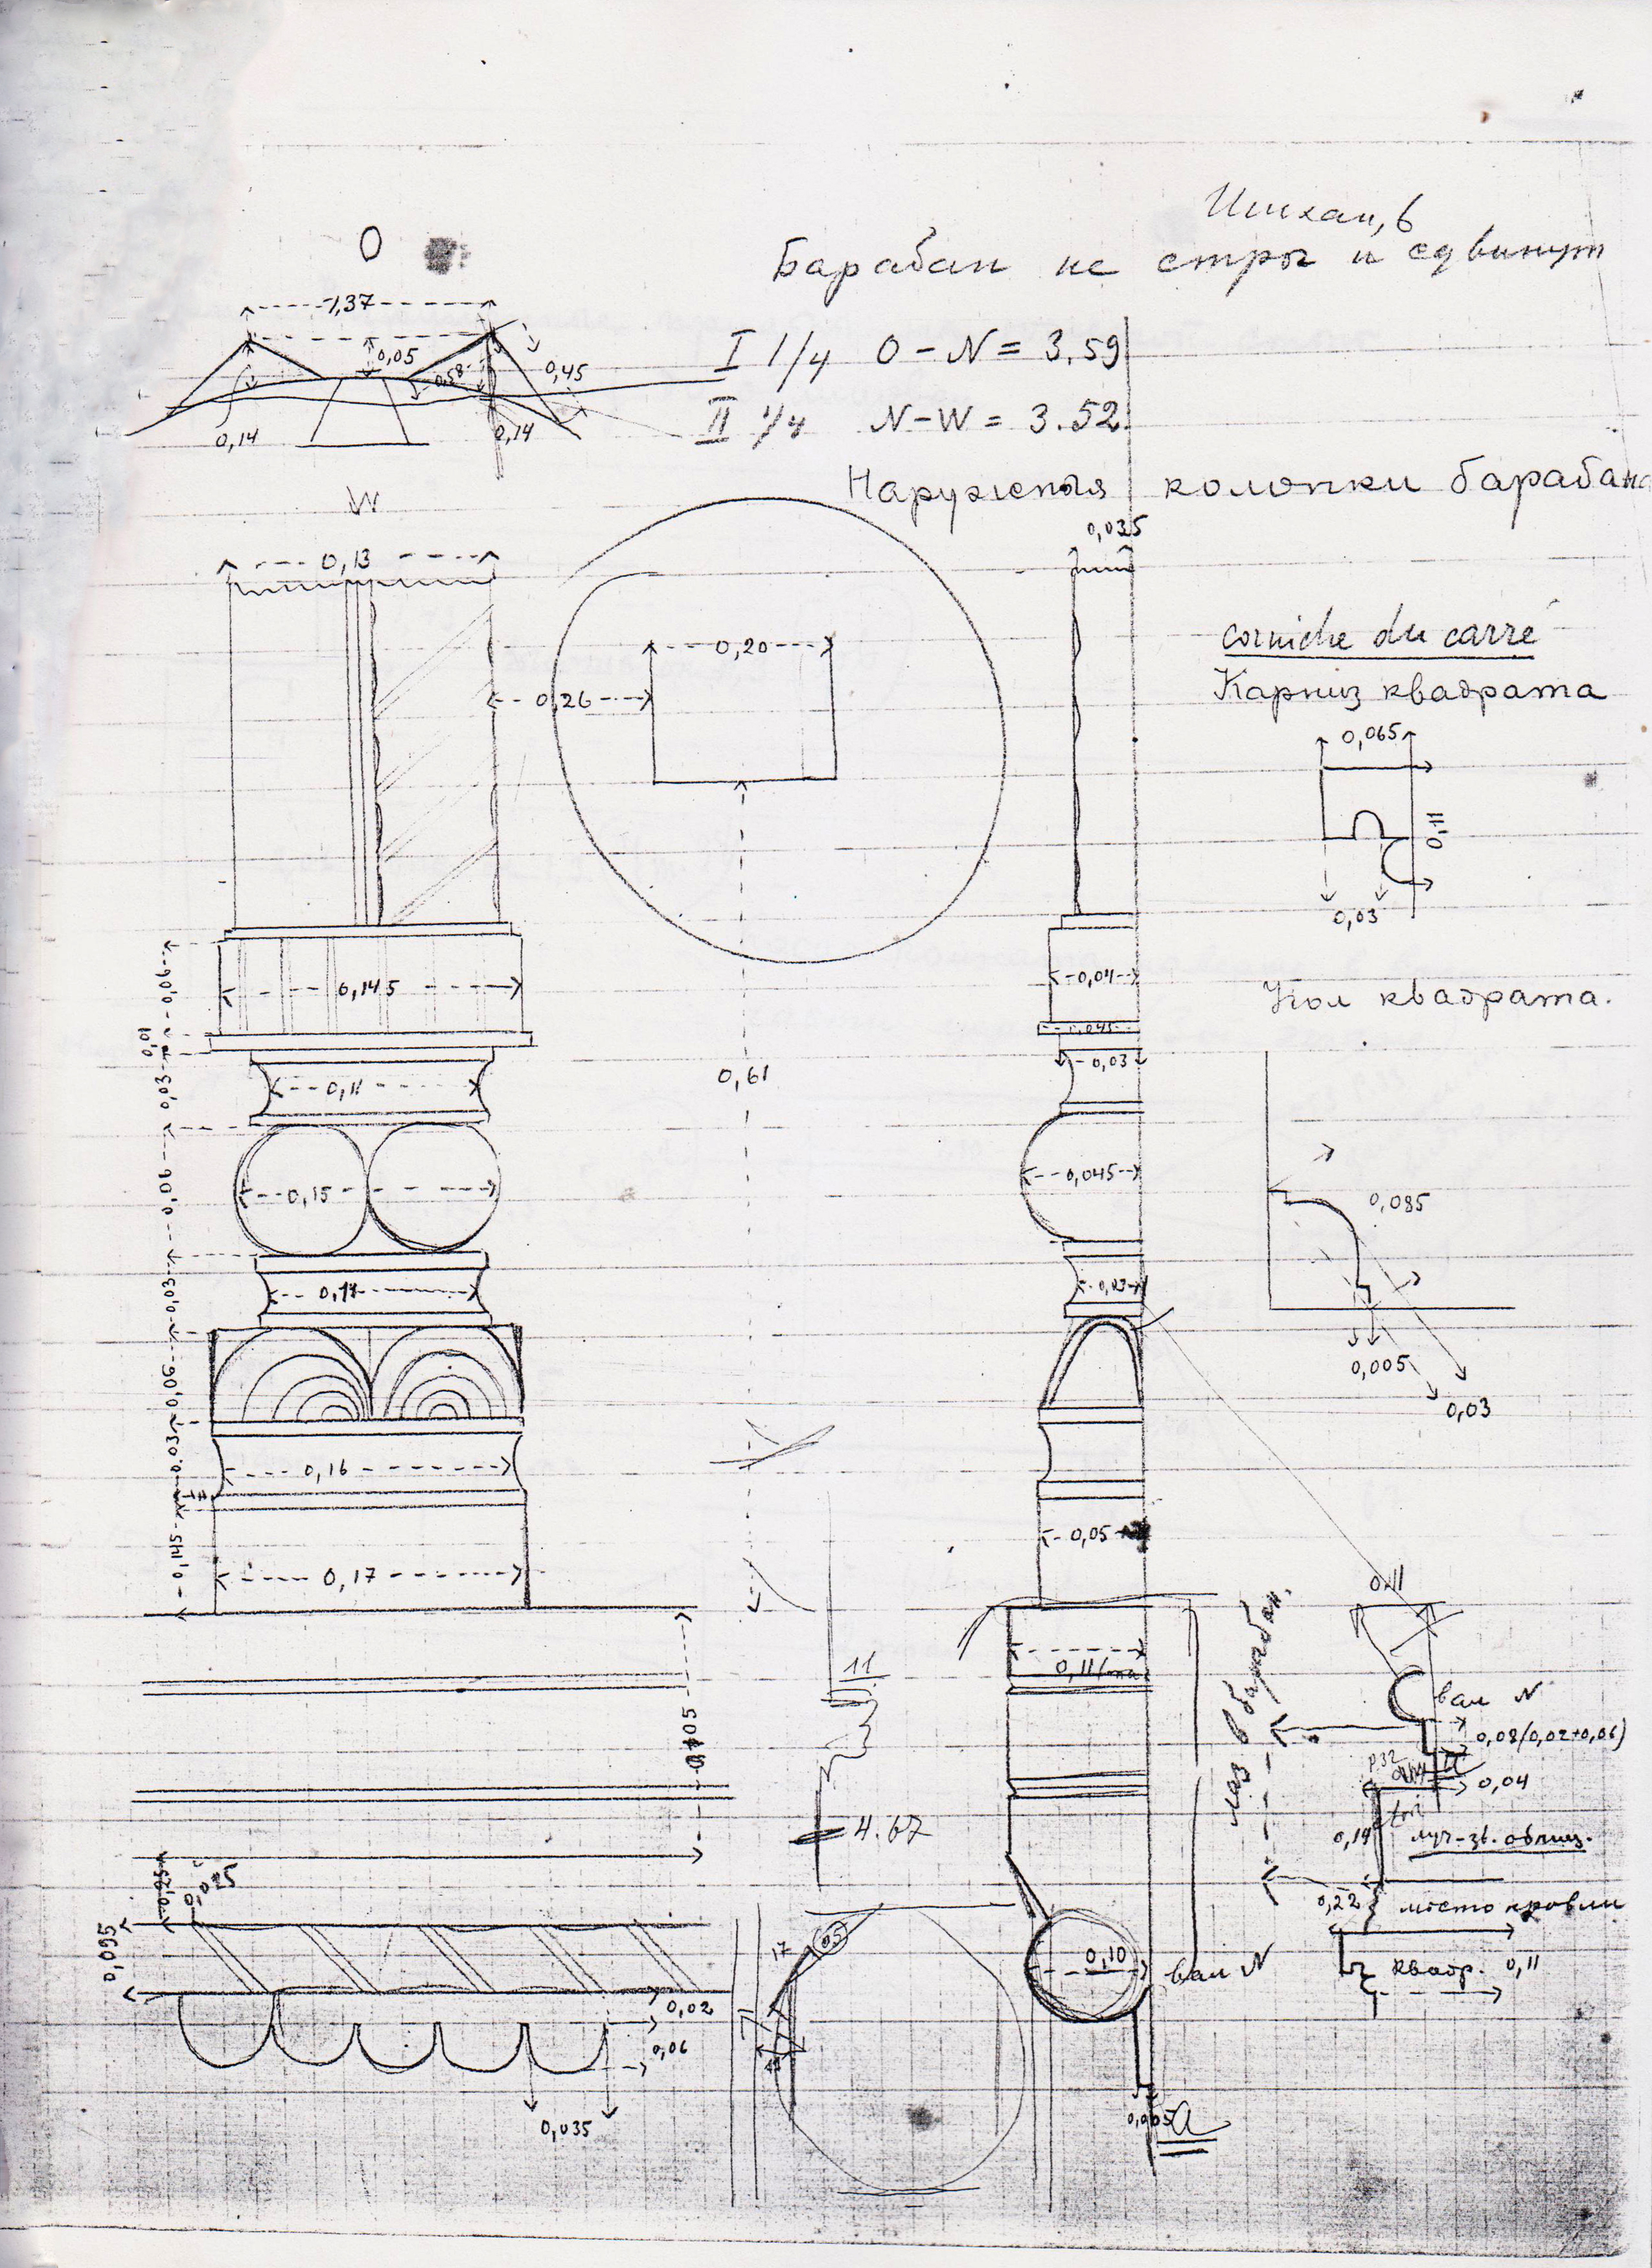 Ишхан, 6
Барабан не стро и сдвинут
O
1,37
0,05
0,58
0,45
0,14
0,14
I 1/4 O-N = 3.59
II 1/4 N-W = 3.52
Наружныя колонки барабана
W
0,13
0,035
0,20
0,26
corniche du carré
Карниз квадрата
0,065
0,11
0,03
0,06
0,145
0,04
Угол квадрата.
0,01
0,045
0,03
0,11
0,03
0,61
0,06
0,15
0,045
0,085
0,03
0,03
0,005
0,03
0,06
0,03
0,16
0,145
0,17
0,05
0,11
11
0,11
вал N
0,08 (0,02+0,06)
0,04
0,405
4.67
0,14
0,025
0,025
0,22
место кровли
0,095
17
0,10
вал N
квадр. 0,11
0,02
0,06
0,035
0,005
a